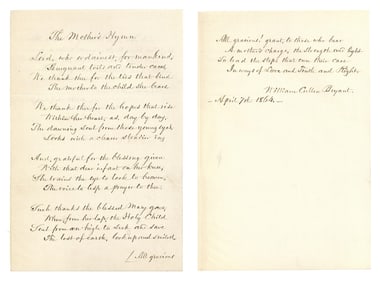 The Mother's Hymn.
Lord, who ordainest for mankind,
Benignant toils and tender cares,
We thank thee for the ties that bind
The mother to the child she bears.
We thank thee for the hopes that rise
Within her heart, as, day by day,
The dawning soul from those young eyes,
Looks with a clearer steadier ray.
And, grateful for the blessing given
With that dear infant on her knee,
She trains the eye to look to heaven,
The voice to lisp a prayer to thee.
Such thanks the blessed Mary gave,
When from her lap, the Holy Child
Sent from on high to seek and save
The lost of earth, looked up and smiled.
All gracious
All gracious! grant, to those who bear
A mother's charge, the strength and light
To lead the steps that own their care
In ways of Love and Truth and Right.
William Cullen Bryant.
April 7th 1864.